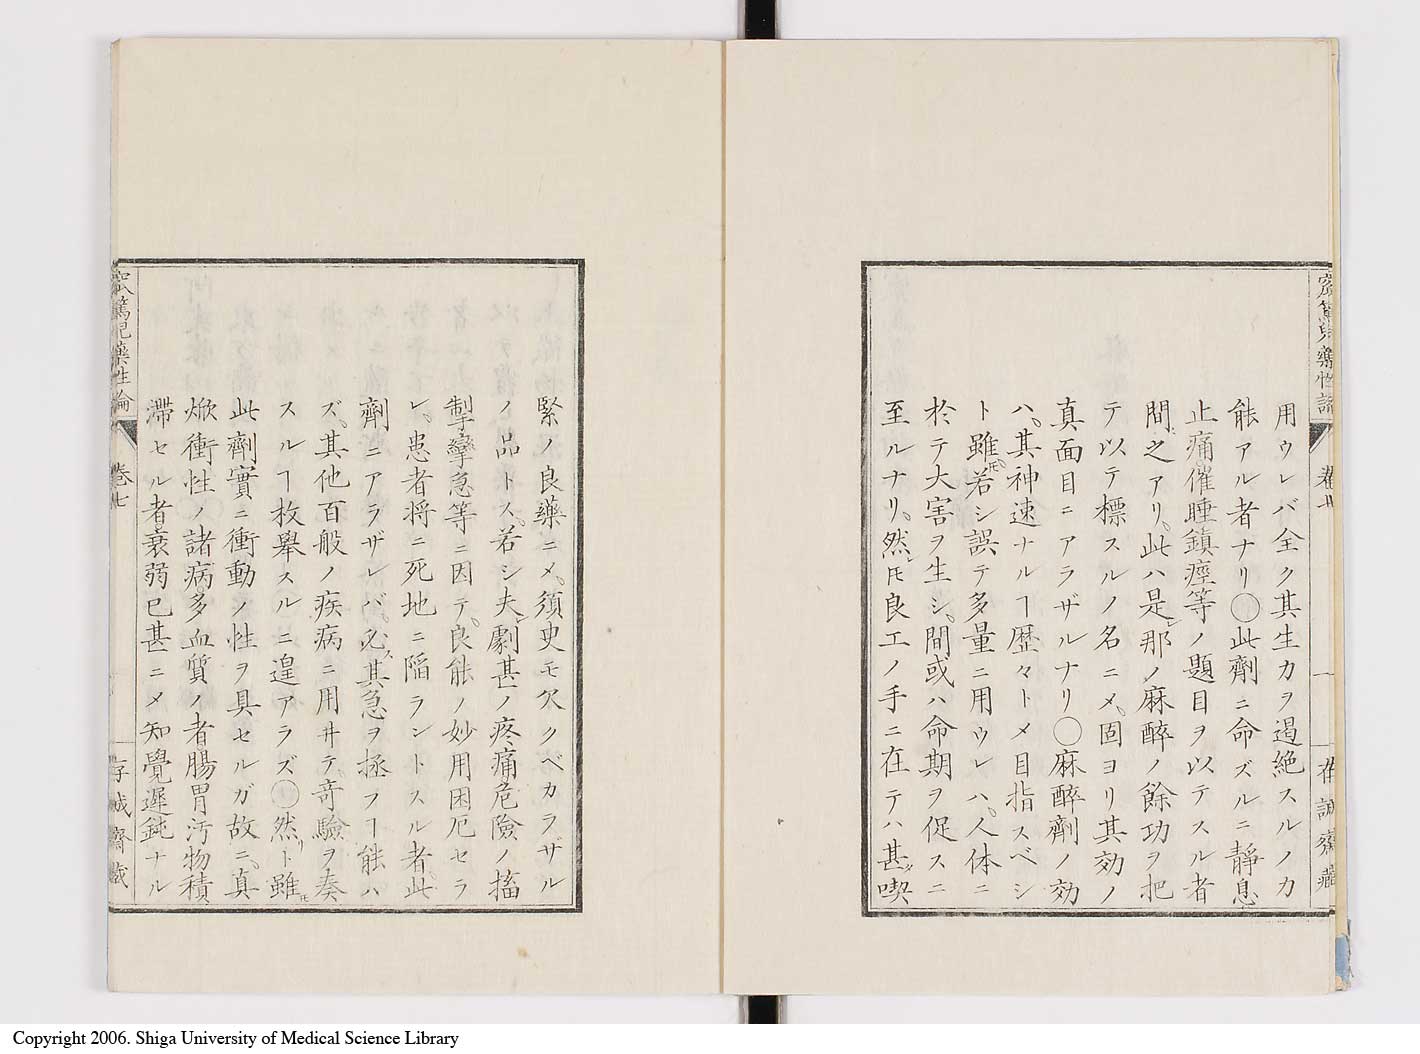 窊篤児薬性論 巻廿一 存誠齋蔵
用ウレバ全ク其生力ヲ遏絶スルノカ
能アル者ナリ〇此劑ニ命ズルニ静息
止痛催睡鎮痙等ノ題目ヲ以テスル者
間之アリ此ハ是那ノ麻醉ノ餘功ヲ把
テ以テ標スルノ名ニメ固ヨリ其効ノ
真面目ニアラザルナリ〇麻醉劑ノ効
ハ其神速ナルヿ歴々トメ目指スベシ
ト雖モ若シ誤テ多量ニ用ウレハ人体ニ
於テ大害ヲ生シ間或ハ命期ヲ促スニ
至ルナリ然レ𪜈良工ノ手ニ在テハ甚ダ喫
緊ノ良藥ニメ須臾モ欠クベカラザル
ノ品トス若シ夫レ劇甚ノ疼痛危險ノ搐
掣攣急等ニ因テ良能ノ妙用困厄セラ
レ患者将ニ死地ニ陥ラントスル者此
劑ニアラザレバ必ズ其急ヲ拯フヿ能ハ
ズ其他百般ノ疾病ニ用ヰテ竒驗ヲ奏
スルヿ枚擧スルニ遑アラズ〇然リト雖𪜈
此劑實ニ衝動ノ性ヲ具セルガ故ニ真
焮衝性ノ諸病多血質ノ者腸胃汚物積
滞セル者衰弱已甚ニメ知覺遲鈍ナル
窊篤児藥性論 巻廿 一 存誠齋蔵